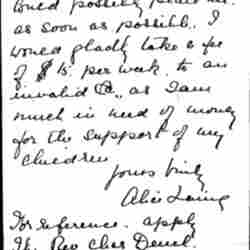 as soon as possible. I
would gladly take a fee
of $15. per week to an
invalid Co., as I am
much in need of money
for the support of my
children
yours truly
Alice
For reference. apply
Rev Chas